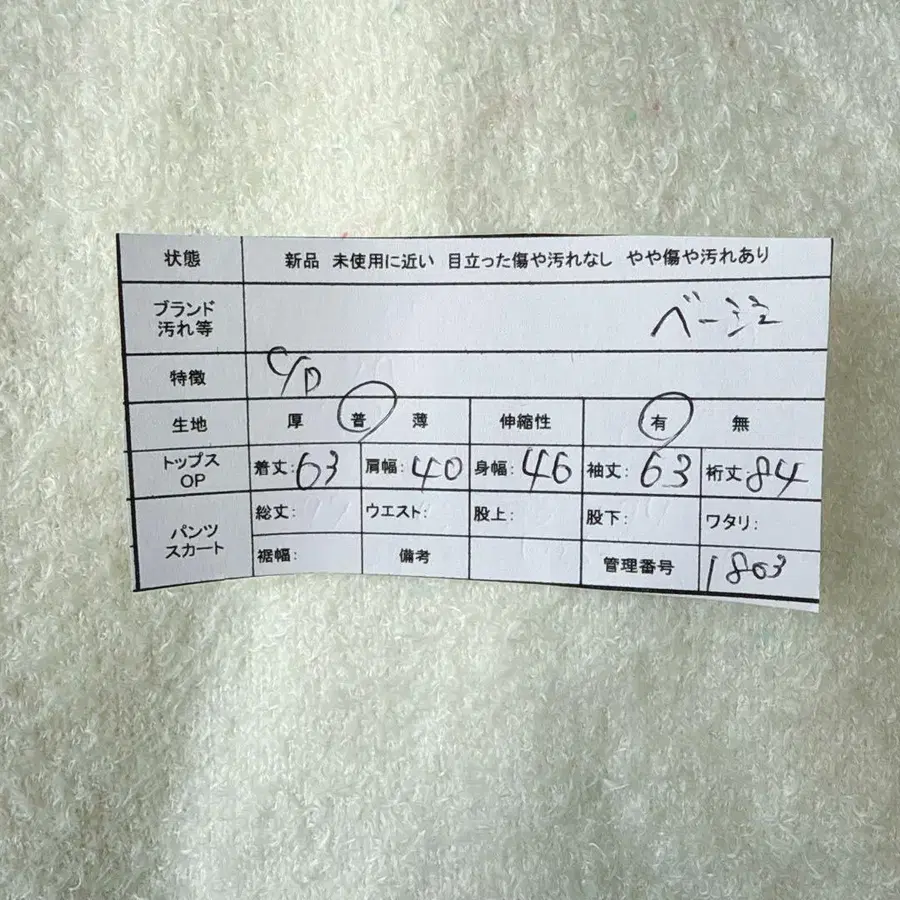 状態 新品 未使用に近い 目立った傷や汚れなし やや傷や汚れあり
ブランド
汚れ等 ベージュ
特徴 C/D
生地 厚 普 薄 伸縮性 有 無
トップス
OP 着丈:63 肩幅:40 身幅:46 袖丈:63 裄丈:84
パンツ
スカート 総丈: ウエスト: 股上: 股下: ワタリ:
裾幅: 備考 管理番号 1863